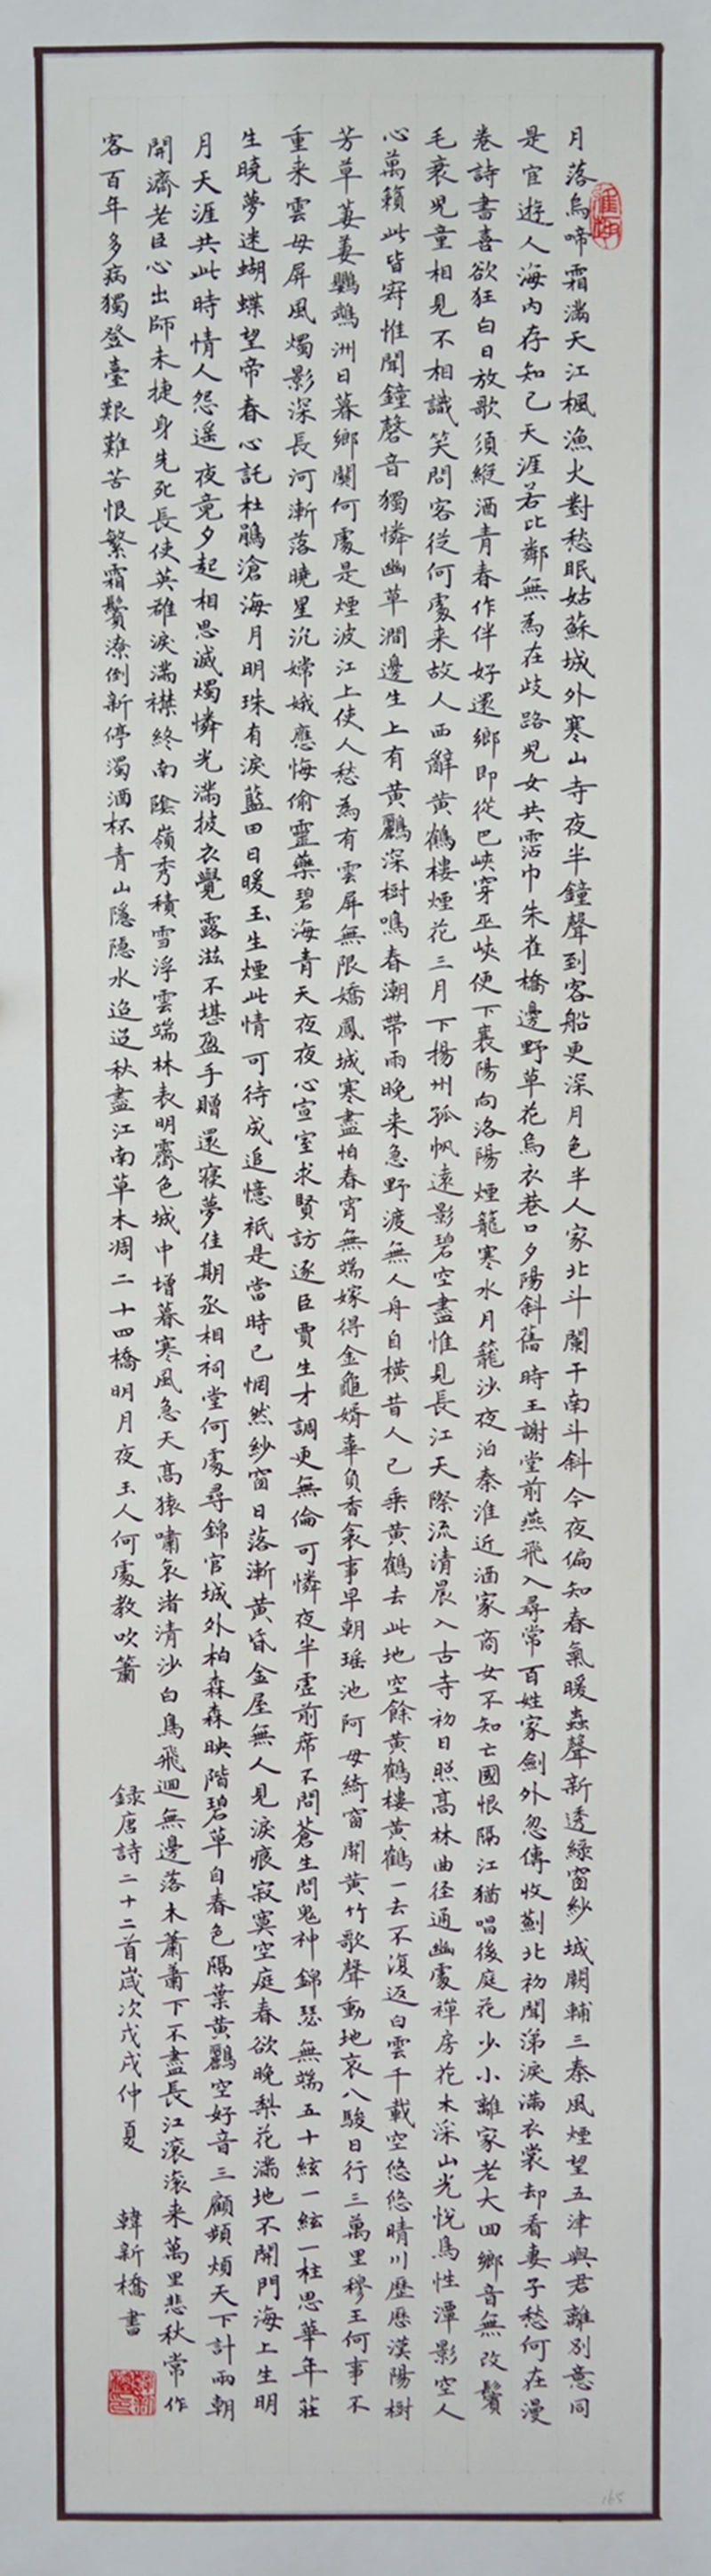 月落烏啼霜滿天江楓漁火對愁眠姑蘇城外寒山寺夜半鐘聲到客船更深月色半人家北斗闌干南斗斜今夜偏知春氣暖蟲聲新透綠窗紗城闕輔三秦風煙望五津與君離別意同
是宦遊人海內存知己天涯若比鄰無為在歧路兒女共霑巾朱雀橋邊野草花烏衣巷口夕陽斜舊時王謝堂前燕飛入尋常百姓家劍外忽傳收薊北初聞涕淚滿衣裳却看妻子愁何在漫
卷詩書喜欲狂白日放歌須縱酒青春作伴好還鄉即從巴峽穿巫峽便下襄陽向洛陽煙籠寒水月籠沙夜泊秦淮近酒家商女不知亡國恨隔江猶唱後庭花少小離家老大回鄉音無改鬢
毛衰兒童相見不相識笑問客從何處來故人西辭黃鶴樓煙花三月下揚州孤帆遠影碧空盡惟見長江天際流清晨入古寺初日照高林曲径通幽處禪房花木深山光悅鳥性潭影空人
心萬籟此皆寂惟聞鐘磬音獨憐幽草澗邊生上有黃鸝深樹鳴春潮帶雨晚来急野渡無人舟自橫昔人已乘黃鶴去此地空餘黃鶴樓黃鶴一去不復返白雲千載空悠悠晴川歷歷漢陽樹
芳草萋萋鸚鵡洲日暮鄉關何處是煙波江上使人愁為有雲屏無限嬌鳳城寒盡怕春宵無端嫁得金龜婿辜負香衾事早朝瑤池阿母綺窗開黃竹歌聲動地哀八駿日行三萬里穆王何事不
重来雲母屏風燭影深長河漸落曉星沉嫦娥應悔偷靈藥碧海青天夜夜心宣室求賢訪逐臣賈生才調更無倫可憐夜半虛前席不問蒼生問鬼神錦瑟無端五十絃一絃一柱思華年莊
生曉夢迷蝴蝶望帝春心託杜鵑滄海月明珠有淚藍田日暖玉生煙此情可待成追憶祇是當時已惘然紗窗日落漸黃昏金屋無人見淚痕寂寞空庭春欲晚梨花滿地不開門海上生明
月天涯共此時情人怨遥夜竟夕起相思滅燭憐光滿披衣覺露滋不堪盈手贈還寢夢佳期丞相祠堂何處尋錦官城外柏森森映階碧草自春色隔葉黃鸝空好音三顧頻煩天下計兩朝
開濟老臣心出師未捷身先死長使英雄淚滿襟終南陰嶺秀積雪浮雲端林表明霽色城中增暮寒風急天高猿嘯哀渚清沙白鳥飛迴無邊落木蕭蕭下不盡長江滾滾来萬里悲秋常作
客百年多病獨登臺艱難苦恨繁霜鬢潦倒新停濁酒杯青山隱隱水迢迢秋盡江南草木凋二十四橋明月夜玉人何處教吹簫 録唐詩二十二首歲次戊戌仲夏 韓新橋書
165